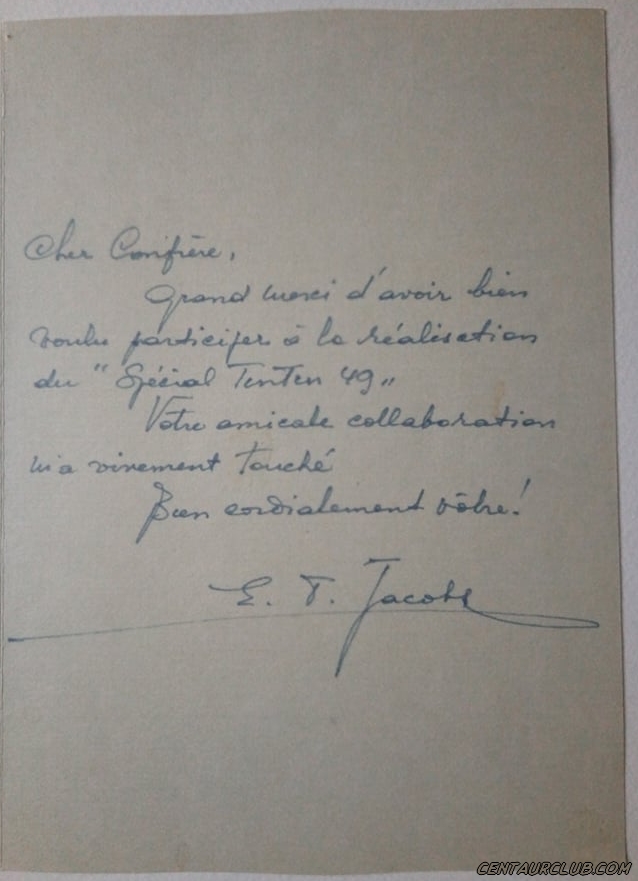 Cher Confrère,
Grand merci d'avoir bien
voulu participer à la réalisation
du "Spécial Tintin 49"
Votre amicale collaboration
m'a vivement touché
Bien cordialement vôtre!
E. P. Jacobs
CENTAURCLUB.COM